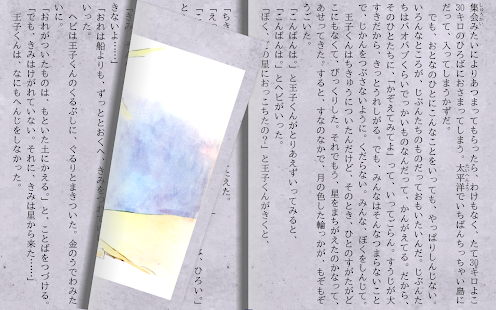 集会みたいによりあつまってもらったら、わけもなく、たて30キロよこ
30キロのひろばにおさまってしまう。太平洋でいちばんちっちゃい島に
だって、入ってしまうかずだ。
でも、おとなのひとにこんなことをいっても、やっぱりしんじない。
いろんなところが、じぶんたちのものだっておもいたいんだ。じぶんた
ちはバオバブくらいでっかいものなんだって、かんがえてる。だから、
そのひとたちに「かぞえてみてよ」って、いってごらん。すうじが大
すきだから、きっとうれしがる。でも、みんなはそんなつまらないこと
で、じかんをつぶさないように。くだらない。みんな、ぼくをしんじて。
王子くんはちきゅうについたんだけど、そのとき、ひとのすがたがど
こにもなくて、びっくりした。それでもう、星をまちがえたのかなって、
あせってきた。すると、すなのなかで、月の色した輪っかが、もぞもぞ
うごいた。
「こんばんは。」と王子くんがとりあえずいってみると、
「こんばんは。」とヘビがいった。
「ぼく、どの星におっこちたの？」と王子くんがきくと、
えた。
ひろい。」
「ちき
きないよ……」
「おれは船よりも、ずっととおくへ、きみをつ
いった。
ヘビは王子くんのくるぶしに、ぐるりとまきついた。金のうでわみた
いに。
「おれがついたものは、もといた土にかえる。」と、ことばをつづける。
「でも、きみはけがれていない。それに、きみは星から来た……」
王子くんは、なにもへんじをしなかった。